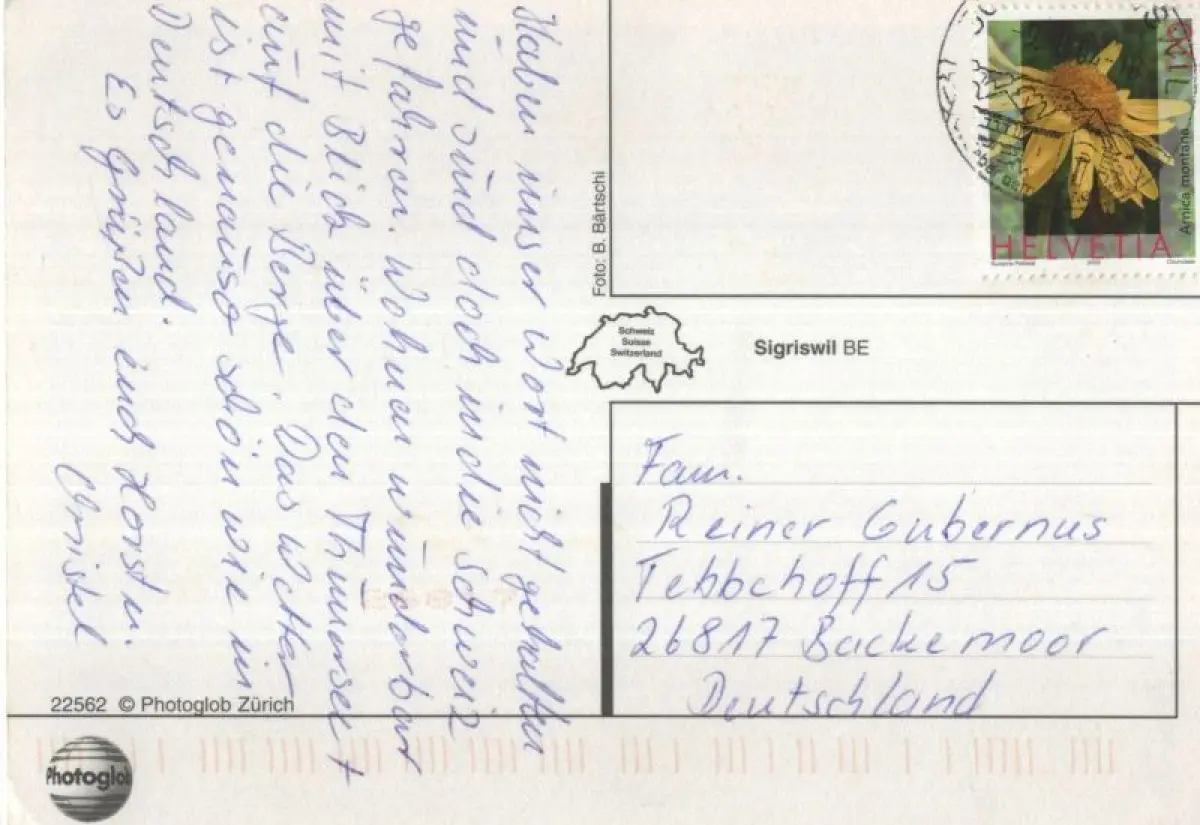 Haben unser Wort nicht gehalten
und sind doch in die Schweiz
gefahren. Wohnen wunderbar
mit Blick über den Thunersee
und die Berge. Das Wetter
ist genauso schön wie in
Deutschland.
Es grüßen euch Horst u.
Christel
22562 © Photoglob Zürich
Photoglob
Foto: B. Bärtschi
Schweiz
Suisse
Switzerland
Sigriswil BE
120
Arnica montana
HELVETIA
Fam.
Reiner Gubernus
Tebbehoff 15
26817 Backemoor
Deutschland